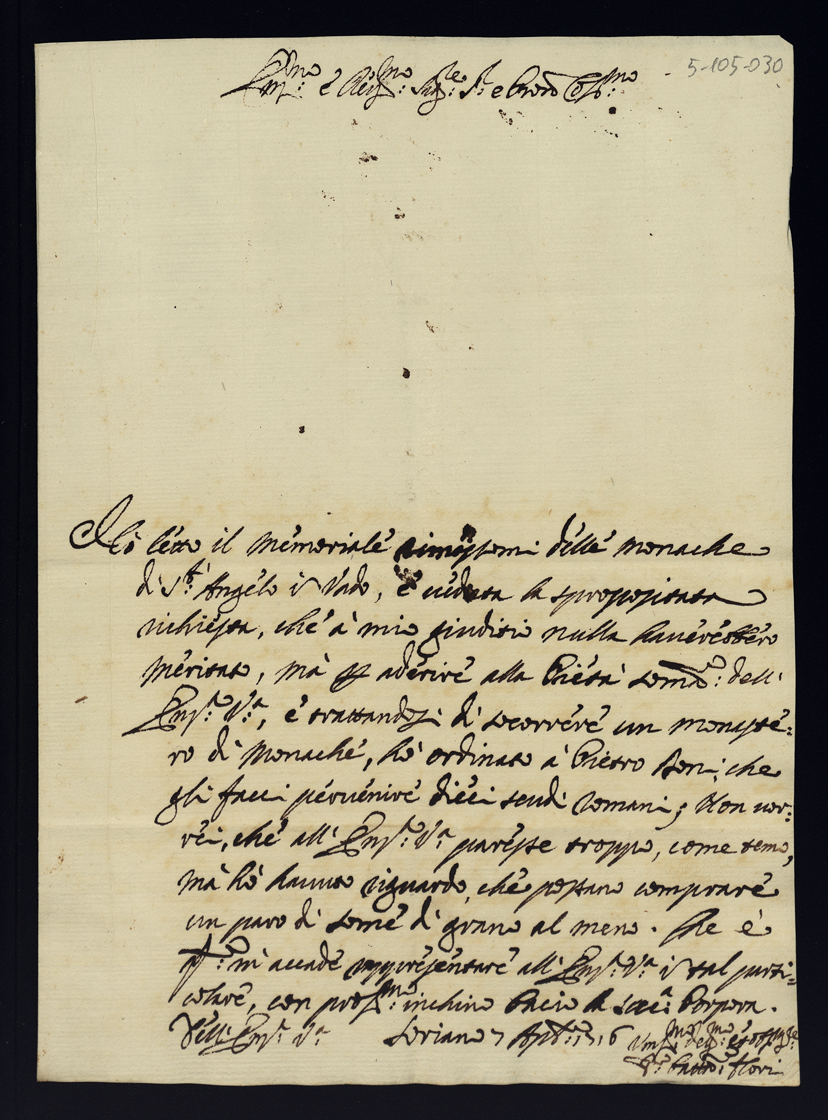 5-105-030
Em:mo e Rev:mo Sig:re S:r e Prōn Col:mo
Hò letto il memoriale rimessomi delle Monache
di S:t Angelo in Vado, e veduta la spropositata
richiesta, che à mio giuditio nulla haverebbero
meritato, mà p aderire alla Pietà somma: dell'
Em:a V:a, e trattandosi di soccorrere un monaste:
ro di Monache, hò ordinato à Pietro Boni, che
gli facci pervenire dieci scudi romani; Non vor:
rei, che all' Em:a V:a paresse troppo, come temo,
mà hò havuto riguardo, che possano comprare
un paro di some di grano al meno. Che è
q:to m'accade rappresentare all' Em:a V:a in tal parti:
colare, con prof:mo inchino bacio la sac:a Porpora.
Dell' Em:a V:a Soriano 7 Ap:
Um:mo Dev:mo et Obblig: